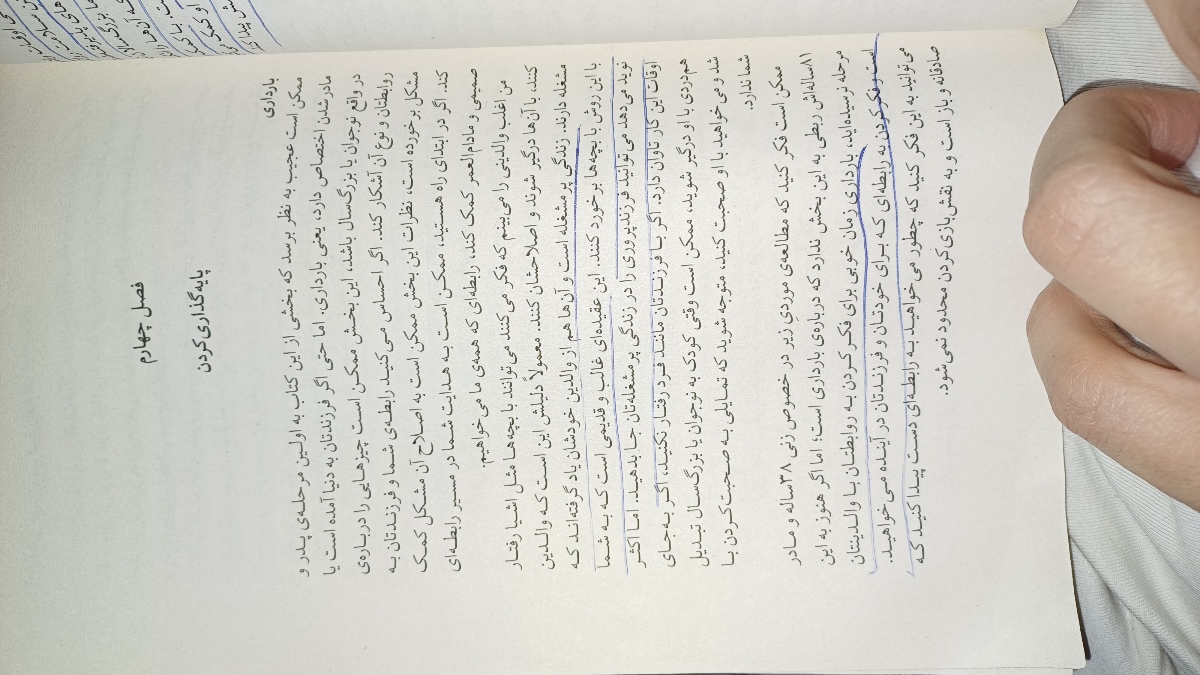 فصل چهارم
پایه‌گذاری کردن
بارداری
ممکن است عجیب به نظر برسد که بخشی از این کتاب به اولین مرحله‌ی پدر و
مادر شدن اختصاص دارد، یعنی بارداری. اما حتی اگر فرزندتان به دنیا آمده است یا
در واقع نوجوان یا بزرگ‌سال باشد، این بخش ممکن است چیزهایی را درباره‌ی
روابطتان و نوع آن آشکار کند. اگر احساس می‌کنید رابطه‌ی شما و فرزندتان به
مشکل برخورده است، نظرات این بخش ممکن است به اصلاح آن مشکل کمک
کند. اگر در ابتدای راه هستید، ممکن است به هدایت شما در مسیر رابطه‌ای
صمیمی و مادام‌العمر کمک کند، رابطه‌ای که همه‌ی ما می‌خواهیم.
من اغلب والدینی را می‌بینم که فکر می‌کنند می‌توانند با بچه‌ها مثل اشیا رفتار
کنند، با آن‌ها درگیر شوند و اصلاحشان کنند. معمولاً دلیلش این است که والدین
مشغله دارند. زندگی پرمشغله است و آن‌ها هم از والدین خودشان یاد گرفته‌اند که
با این روش با بچه‌ها برخورد کنند. این عقیده‌ای غالب و قدیمی است که به شما
نوید می‌دهد می‌توانید فرزندپروری را در زندگی پرمشغله‌تان جا بدهید. اما اکثر
اوقات این کار تاوان دارد. اگر با فرزندتان مانند فرد رفتار نکنید، اگر به‌جای
هم‌دردی با او درگیر شوید، ممکن است وقتی کودک به نوجوان یا بزرگ‌سال تبدیل
شد و می‌خواهید با او صحبت کنید، متوجه شوید که تمایلی به صحبت‌کردن با
شما ندارد.
ممکن است فکر کنید که مطالعه‌ی موردی زیر در خصوص زنی ۳۸ساله و مادر
۸۱ساله‌اش ربطی به این بخش ندارد که درباره‌ی بارداری است؛ اما اگر هنوز به این
مرحله نرسیده‌اید، بارداری زمان خوبی برای فکرکردن به روابطتان با والدینتان
است و فکرکردن به رابطه‌ای که برای خودتان و فرزندتان در آینده می‌خواهید.
می‌توانید به این فکر کنید که چطور می‌خواهید به رابطه‌ای دست پیدا کنید که
صادقانه و باز است و به نقش بازی‌کردن محدود نمی‌شود.